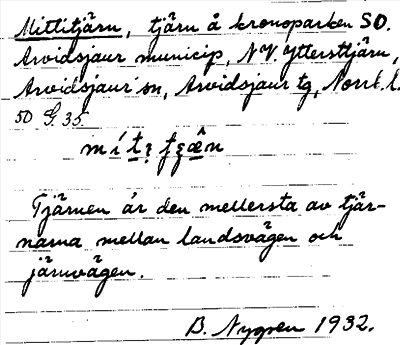 Mittitjärn, tjärn å kronoparken SO.
Arvidsjaur municip, NV. Yttersttjärn,
Arvidsjaur sn, Arvidsjaur tg, Norrb. l.
50 G. 35
Tjärnen är den mellersta av tjär-
narna mellan landsvägen och
järnvägen.
B. Nygren 1932.